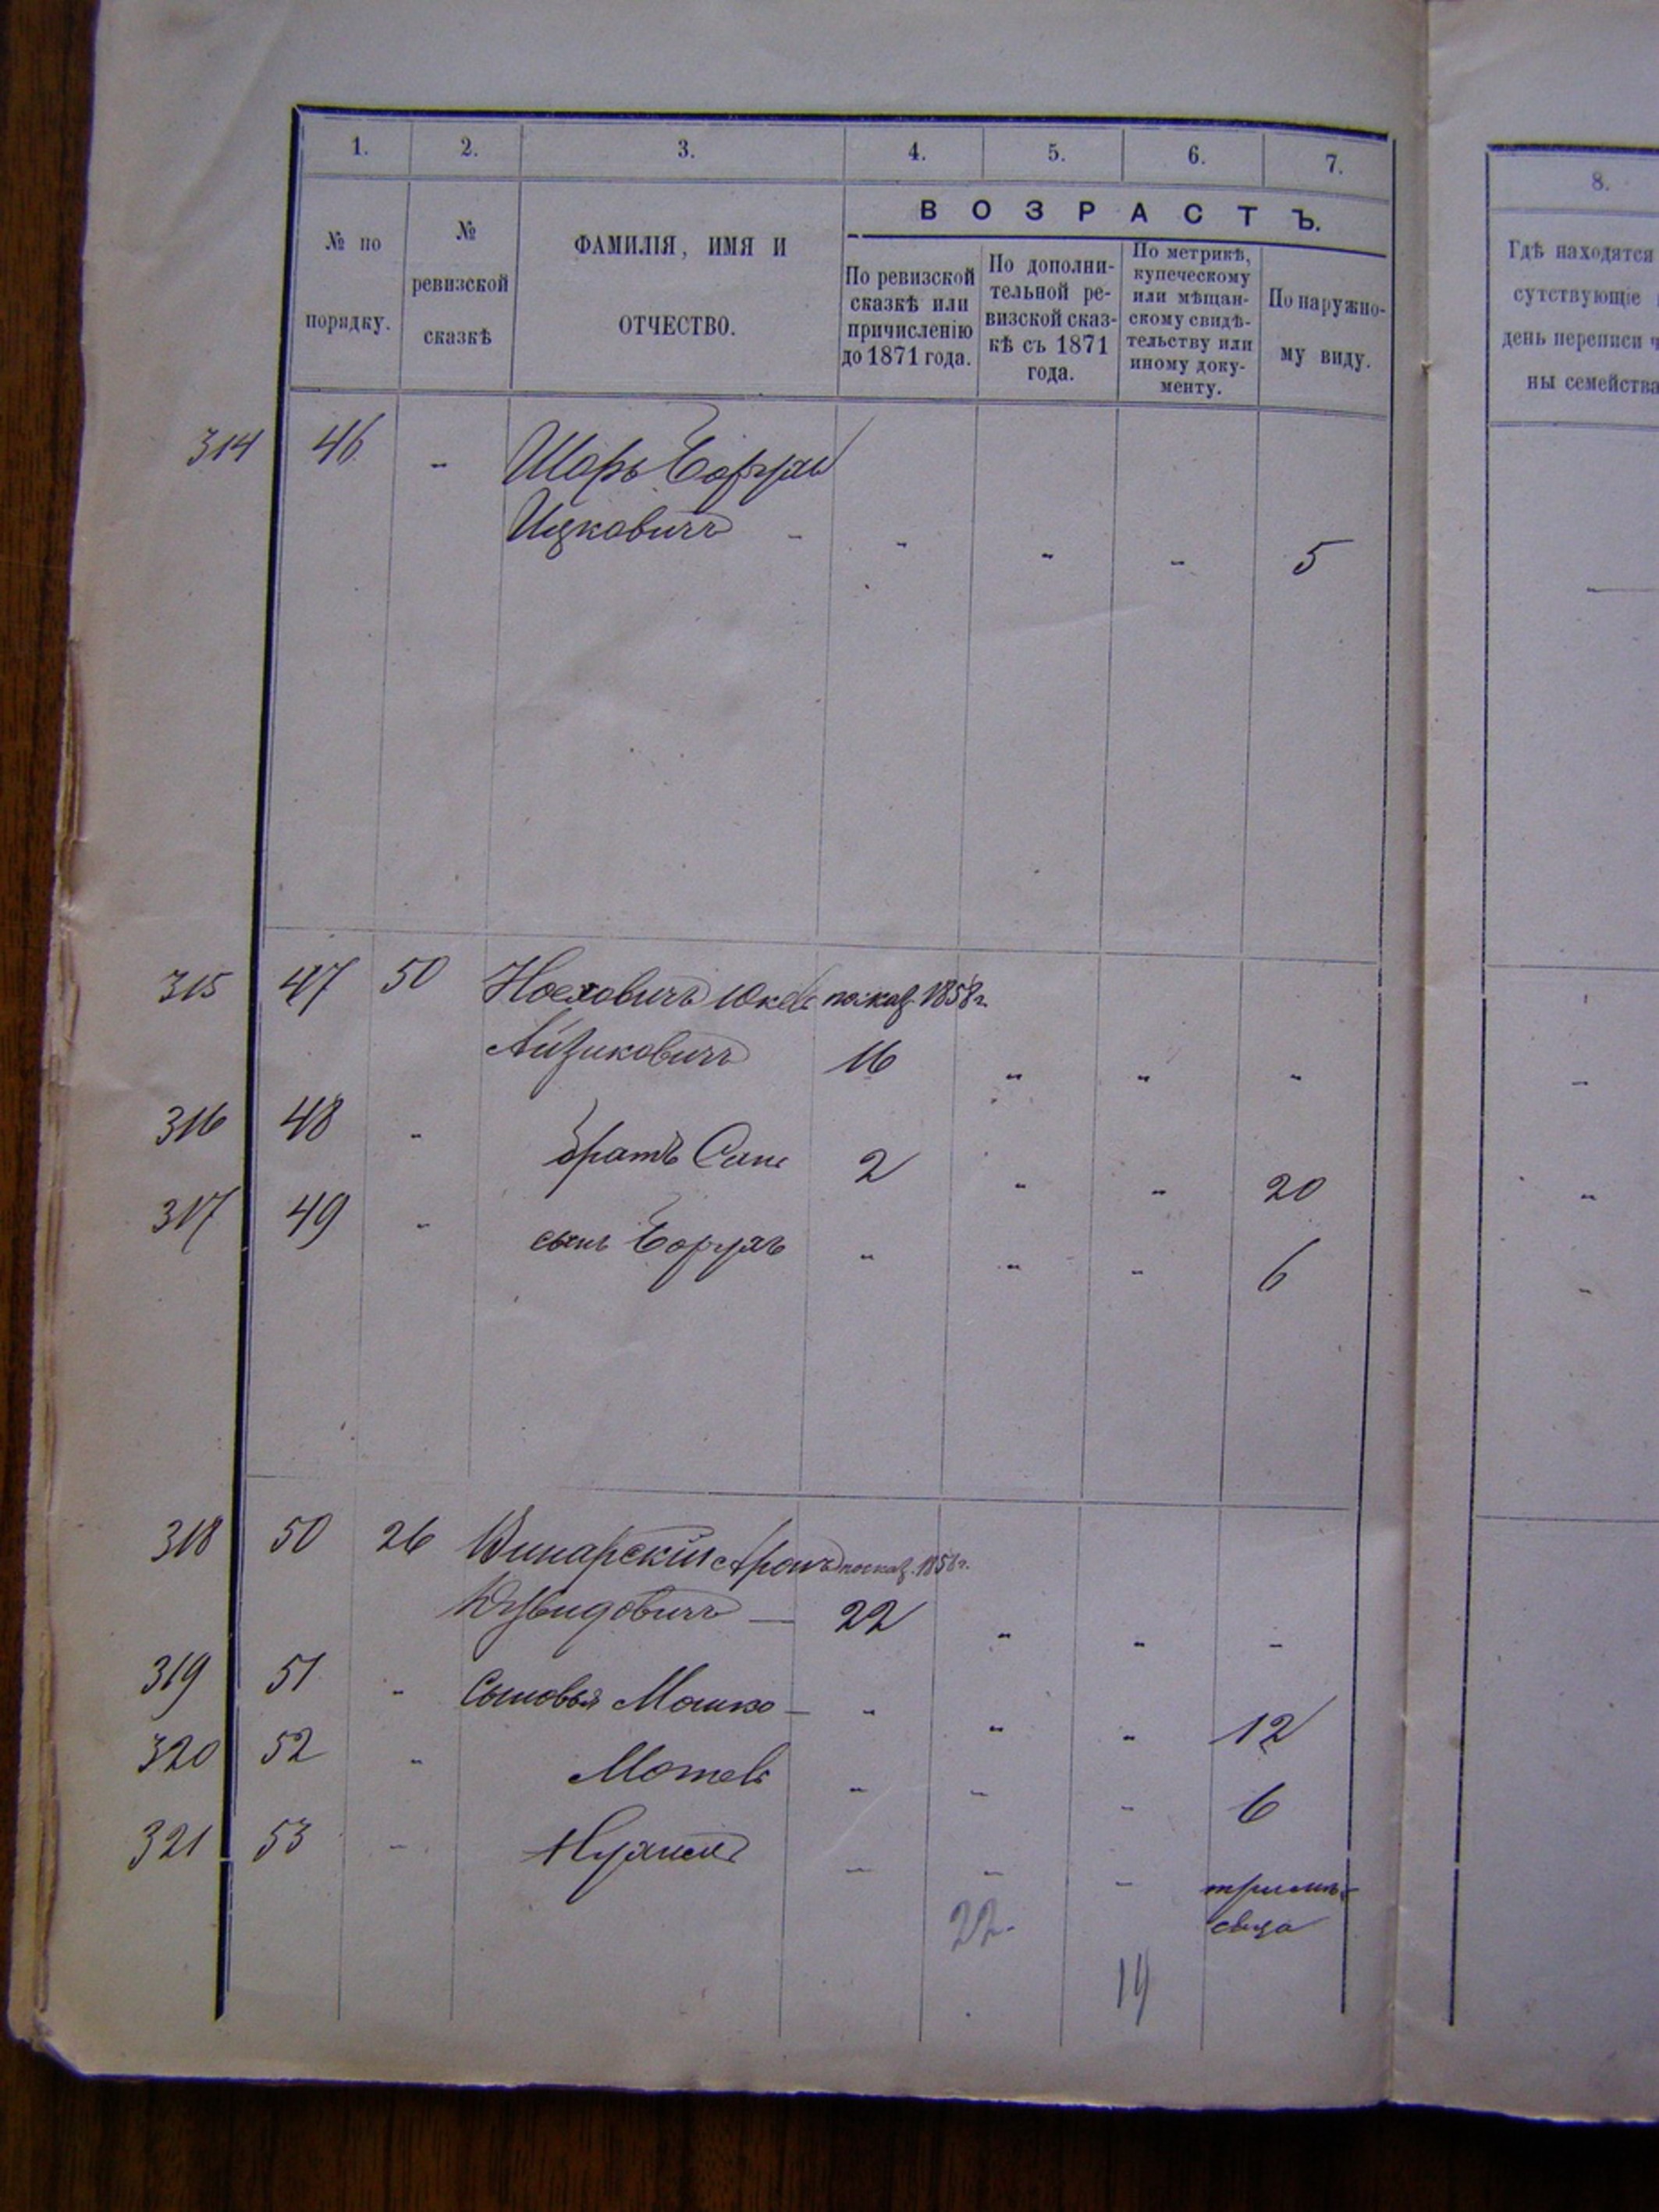 1. 2. 3. 4. 5. 6. 7.
№ по порядку.
№ ревизской сказкѣ
ФАМИЛІЯ, ИМЯ И
ОТЧЕСТВО.
ВОЗРАСТЪ.
По ревизской
сказкѣ или
причисленію
до 1871 года.
По дополни-
тельной ре-
визской сказ-
кѣ съ 1871
года.
По метрикѣ,
купеческому
или мѣщан-
скому свидѣ-
тельству или
иному доку-
менту.
По наружно-
му виду.
8.
Гдѣ находятся
сутствующіе
день переписи ч
ны семейства
314 46 " Шоръ Борухъ
Ицковичъ - " " " 5
315 47 50 Носховичъ Юкель по каз. 1858 г.
Айзиковичъ 16 " " "
316 48 " братъ 2 " " 20
317 49 " сынъ Борухъ " " " 6
318 50 26 Винарскій Аронъ по каз. 1858 г.
22 " " "
319 51 " Сыновья Мошко - " " " 12
320 52 " Мотель " " " 6
321 53 " Нухимъ " " " три мѣ-
сяца
22.
14